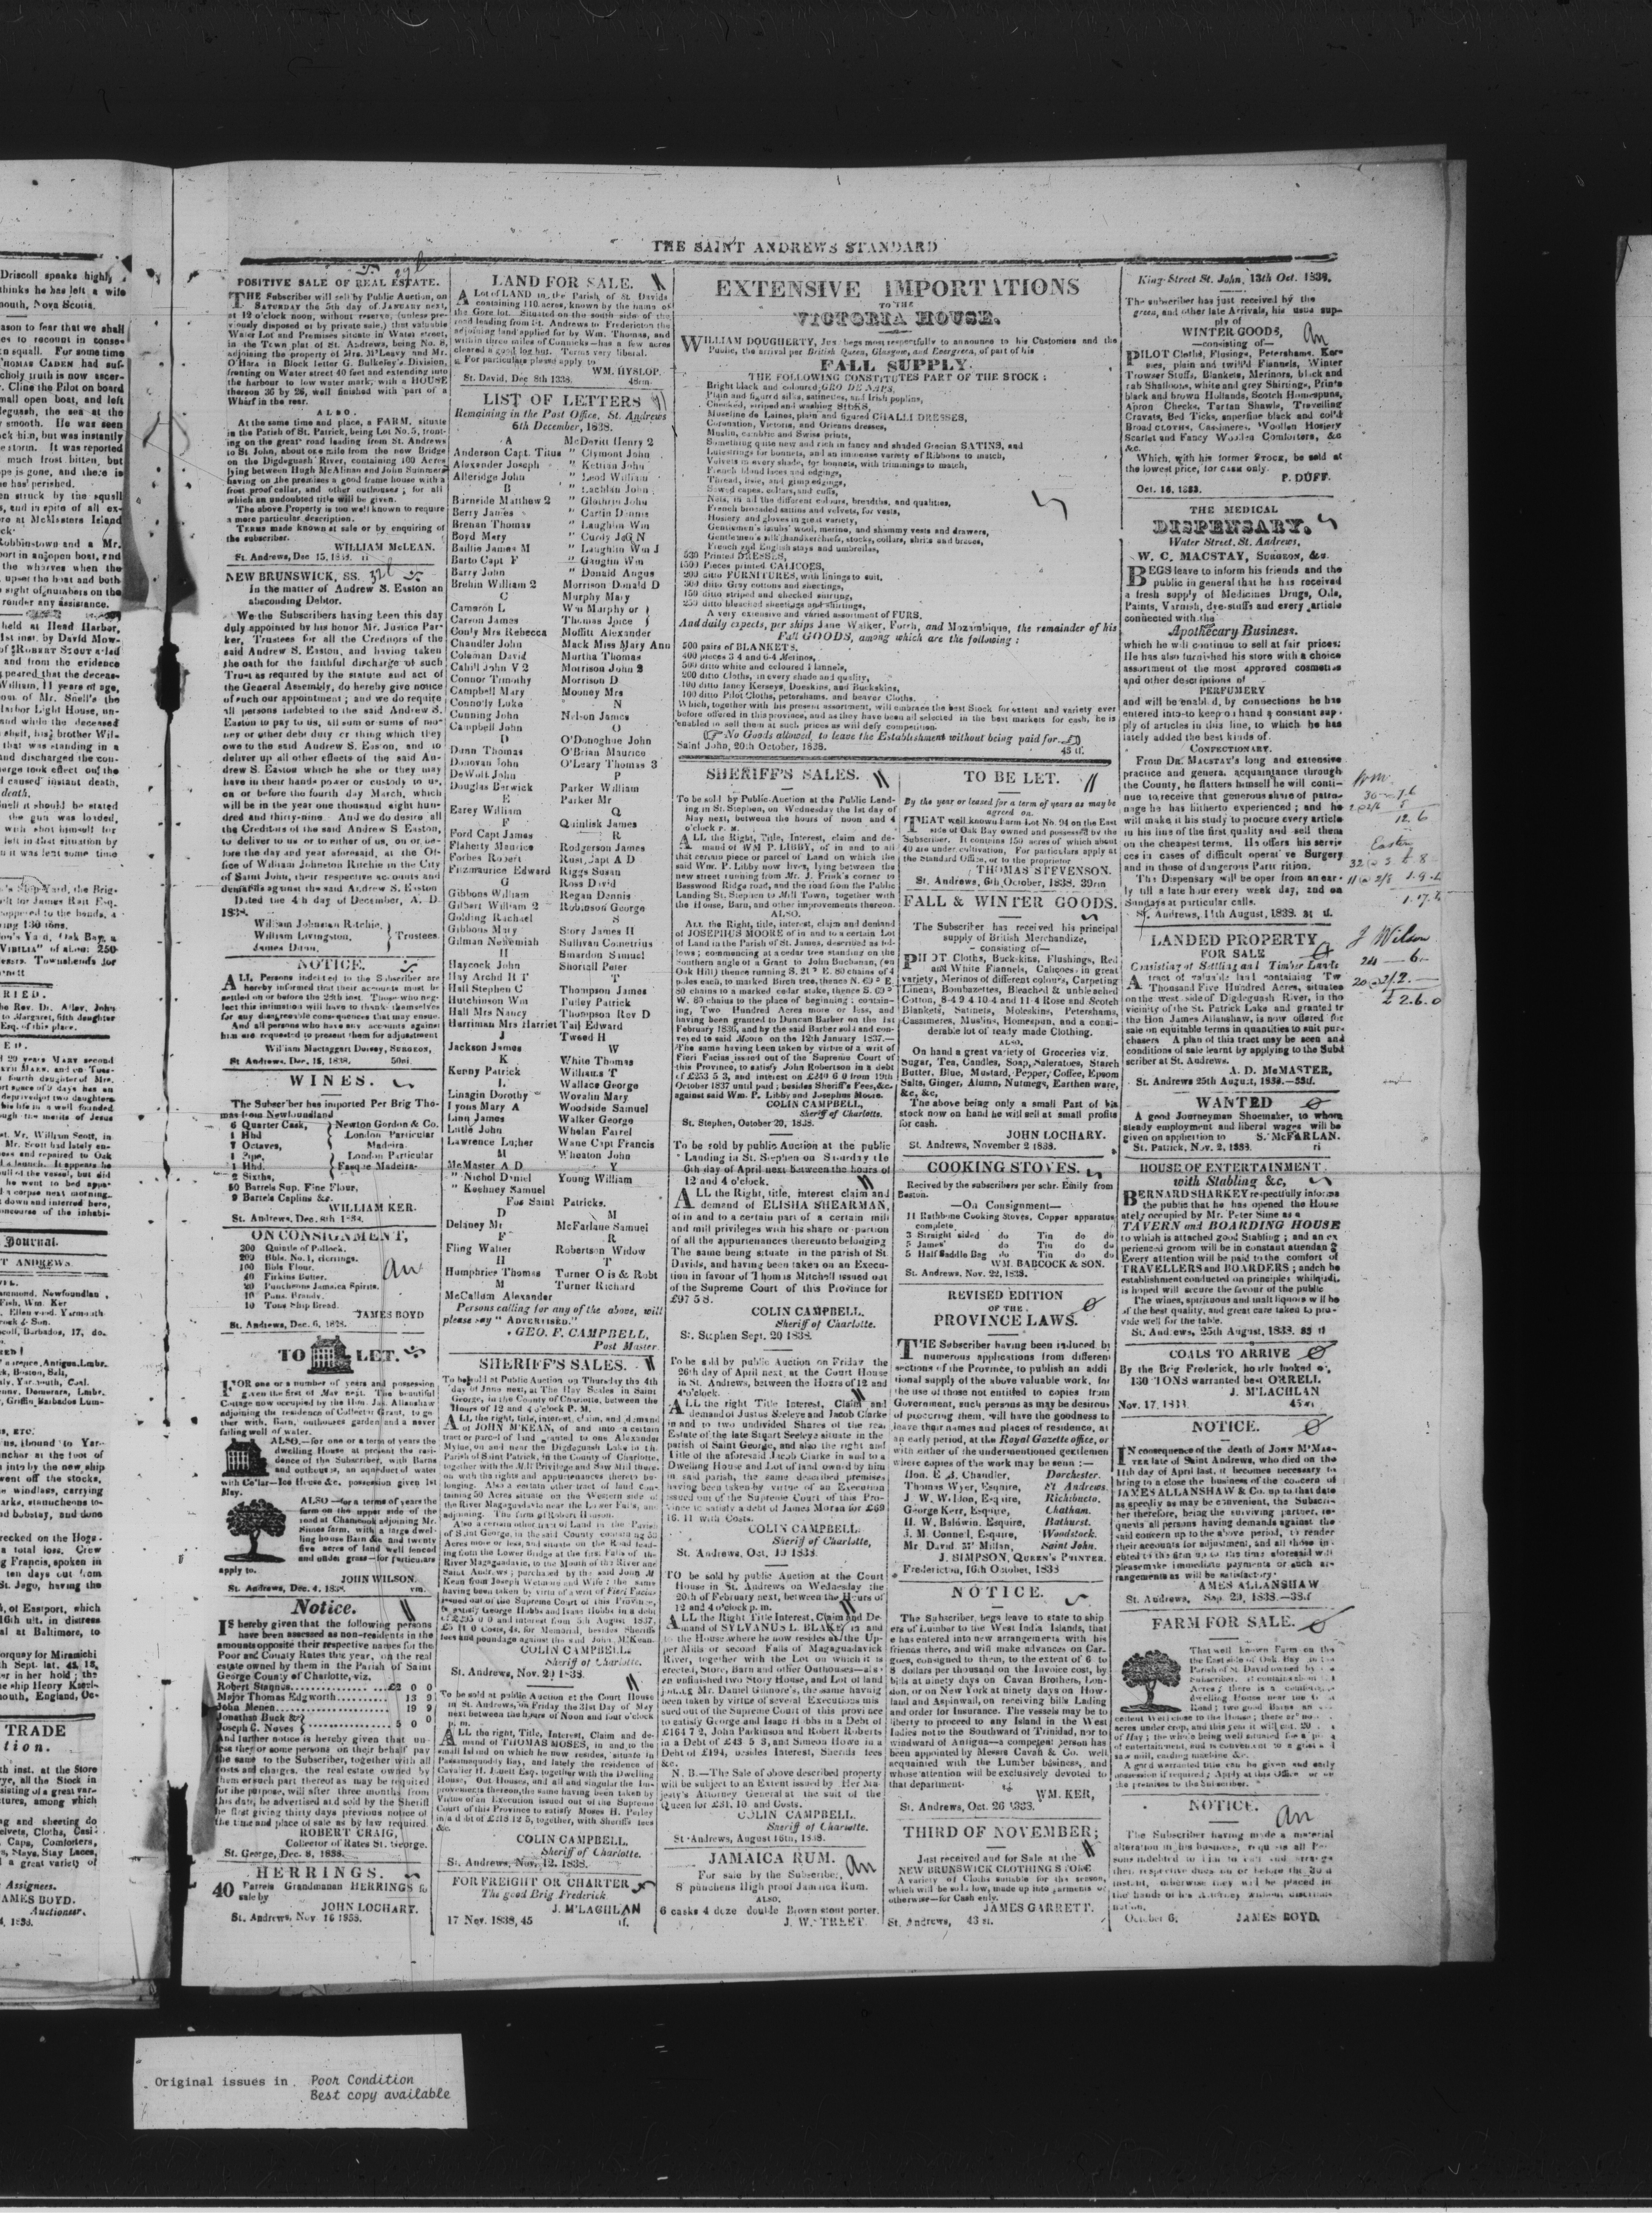 THE SAINT ANDREWS STANDARD
POSITIVE SALE OF REAL ESTATE.
THE Subscriber will sell by Public Auction, on
SATURDAY the 5th day of JANUARY next,
at 12 o'clock noon, without reserve, (unless pre-
viously disposed of by private sale,) that valuable
Water Lot and Premises situate in Water street,
in the Town plat of St. Andrews, being No. 8,
adjoining the property of Mrs. M'Leavy and Mr.
O'Hara in Block letter G. Bulkeley's Division,
fronting on Water street 40 feet and extending into
the harbour to low water mark, with a HOUSE
thereon 36 by 26, well finished with part of a
Wharf in the rear.
ALSO.
At the same time and place, a FARM, situate
in the Parish of St. Patrick, being Lot No. 5, front-
ing on the great road leading from St. Andrews
to St John, about one mile from the new Bridge
on the Digdeguash River, containing 100 Acres
lying between Hugh McAlinan and John Summers
having on the premises a good frame house with a
frost proof cellar, and other outhouses; for all
which an undoubted title will be given.
The above Property is too well known to require
a more particular description.
TERMS made known at sale or by enquiring of
the subscriber.
WILLIAM McLEAN.
St. Andrews, Dec 15, 1838.
NEW BRUNSWICK, SS.
In the matter of Andrew S. Easton an
absconding Debtor.
We the Subscribers having been this day
duly appointed by his honor Mr. Justice Par-
ker, Trustees for all the Creditors of the
said Andrew S. Easton, and having taken
the oath for the faithful discharge of such
Trust as required by the statute and act of
the General Assembly, do hereby give notice
of such our appointment; and we do require
all persons indebted to the said Andrew S.
Easton to pay to us, all sum or sums of mo-
ney or other debt duty or thing which they
owe to the said Andrew S. Easton, and to
deliver up all other effects of the said An-
drew S. Easton which he she or they may
have in their hands power or custody to us,
on or before the fourth day March, which
will be in the year one thousand eight hun-
dred and thirty-nine. And we do desire all
the Creditors of the said Andrew S Easton,
to deliver to us or to either of us, on or be-
fore the day and year aforesaid, at the Of-
fice of William Johnston Ritchie in the City
of Saint John, their respective accounts and
demands against the said Andrew S. Easton
Dated the 4th day of December, A. D.
1838.
William Johnston Ritchie,
William Livingston, Trustees.
James Dunn,
NOTICE.
ALL Persons indebted to the Subscriber are
hereby informed that their accounts must be
settled on or before the 25th inst. Those who neg-
lect this intimation will have to thank themselves
for any disagreeable consequences that may ensue.
And all persons who have any accounts against
him are requested to present them for adjustment
William Mactaggart Dorsey, SURGEON,
St Andrews, Dec. 15, 1838.
WINES.
The Subscriber has imported Per Brig Tho-
mas from Newfoundland
6 Quarter Cask, Newton Gordon & Co.
1 Hhd London Particular
7 Octaves, Madeira.
1 Pipe, London Particular
1 Hhd.
2 Sixths,
50 Barrels Sup. Fine Flour,
9 Barrels Caplins &c.
WILLIAM KER.
St. Andrews, Dec. 8th 1838.
ON CONSIGNMENT,
300 Quintls of Pollock,
200 Bbls. No. 1, Herrings.
100 Bbls Flour.
40 Firkins Butter.
20 Puncheons Jamaica Spirits.
10 Puns. Brandy.
10 Tons Ship Bread.
JAMES BOYD
St. Andrews, Dec. 6, 1838.
TO LET.
FOR one or a number of years and possession
given the first of May next. The beautiful
Cottage now occupied by the Hon. Jas. Allanshaw
adjoining the residence of Collector Grant, to ge-
ther with, Barn, outhouses garden and a never
failing well of water.
ALSO,—for one or a term of years the
dwelling House at present the resi-
dence of the Subscriber, with Barns
and outhouses, an aqueduct of water
with Cellar—Ice House &c. possession given 1st
May.
ALSO—for a terms of years the
farm on the upper side of the
road at Chamcook adjoining Mr.
Simes farm, with a large dwel-
ling house Barn &c and twenty
five acre of land well fenced
and under grass—for particulars
apply to.
JOHN WILSON.
St. Andrews, Dec. 4, 1838.
Notice.
IS hereby given that the following persons
have been assessed as non-residents in the
amounts opposite their respective names for the
Poor and County Rates the year, on the real
estate owned by them in the Parish of Saint
George County of Charlotte, viz.
Robert Stagnus £2 0 0
Major Thomas Edgworth 13 9
John Menen 19 9
Jonathan Buck &
Joseph C. Noyes 5 0 0
And further notice is hereby given that un-
less they or some persons on their behalf pay
the same to the Subscriber, together with all
costs and charges, the real estate owned by
them or such part thereof as may be required
for the purpose, will after three months from
this date, be advertised and sold by the Sheriff
he first giving thirty days previous notice of
the time and place of sale as by law required
ROBERT CRAIG,
Collector of Rates St. George.
St. George, Dec. 8, 1838.
HERRINGS.
40 Barrels Grandmanan HERRINGS for
sale by
JOHN LOCHARY.
St. Andrews, Nov 16 1838.
LAND FOR SALE.
A Lot of LAND in the Parish of St Davids
containing 110 acres, known by the name of
the Gore lot. Situated on the south side of the
road leading from St. Andrews to Fredericton the
adjoining land applied for by Wm. Thomas, and
within three miles of Connicks—has a few acres
cleared a good log hut. Terms very liberal.
For particulars please apply to
WM. HYSLOP.
St. David, Dec 8th 1838. 48rm.
LIST OF LETTERS
Remaining in the Post Office, St. Andrews
6th December, 1838.
A
Anderson Capt. Titus
Alexander Joseph
Alleridge John
B
Burnside Matthew 2
Berry James
Brenan Thomas
Boyd Mary
Baillie James M
Barto Capt F
Barry John
Brehin William 2
C
Cameron L
Carson James
Conly Mrs Rebecca
Chandler John
Coleman David
Cahill John V 2
Connor Timothy
Campbell Mary
Connolly Luke
Cunning John
Campbell John
D
Dunn Thomas
Donovan John
DeWolf John
Douglas Berwick
E
Earey William
F
Ford Capt James
Flaherty Maurice
Forbes Robert
Fitzmaurice Edward
G
Gibbons William
Gilbert William 2
Golding Rachael
Gibbons Mary
Gilman Nehemiah
H
Haycock John
Hay Archd R T
Hall Stephen C
Hutchinson Wm
Hall Mrs Nancy
Harriman Mrs Harriet
J
Jackson James
K
Kenny Patrick
L
Linagin Dorothy
Lyons Mary A
Linn James
Little John
Lawrence Luther
M
McMaster A D
" Nichol Daniel
" Kechney Samuel
McDavitt Henry 2
" Clymont John
" Kettian John
" Leod William
" Lachlan John
" Glochrin John
" Cartin Dennis
" Laughlin Wm
" Curdy J&G N
" Laughlin Wm J
" Gaugtin Wm
" Donald Angus
Morrison Donald D
Murphy Mary
Wm Murphy or
Thomas Joice
Moffitt Alexander
Mack Miss Mary Ann
Murtha Thomas
Morrison John 2
Morrison D
Mooney Mrs
N
Nelson James
O
O'Donoghue John
O'Brian Maurice
O'Leary Thomas 3
P
Parker William
Parker Mr
Q
Quinlisk James
R
Rodgerson James
Rust Capt A D
Riggs Susan
Ross David
Regan Dennis
Robinson George
S
Story James II
Sullivan Cometrius
Smardon Samuel
Shortall Peter
T
Thompson James
Tulley Patrick
Thompson Rev D
Tait Edward
Tweed H
W
White Thomas
Williams T
Wallace George
Woralin Mary
Woodside Samuel
Walker George
Whelan Farrel
Wane Capt Francis
Wheaton John
Y
Young William
For Saint Patricks.
D
Delaney Mr
F
Fling Walter
H
Humphries Thomas
M
McCallum Alexander
M
McFarlane Samuel
R
Robertson Widow
T
Turner Otis & Robt
Turner Richard
Persons calling for any of the above, will
please say "ADVERTISED."
GEO. F. CAMPBELL,
Post Master
SHERIFF'S SALES.
To be sold at Public Auction on Thursday the 4th
day of June next, at The Hay Scales in Saint
George, in the County of Charlotte, between the
Hours of 12 and 4 o'clock P. M.
ALL the right, title, interest, claim, and demand
of JOHN M'KEAN, of and into a certain
tract or parcel of land granted to one Alexander
Mylne, on and near the Digdeguash Lake in the
Parish of Saint Patrick, in the County of Charlotte,
together with the Mill Privilege and Saw Mill there-
on with the rights and appurtenances thereto be-
longing. Also a certain other tract of land Con-
taining 50 Acres situate on the Western side of
the River Magaguadavic near the Lower Falls, and
adjoining. The farm of Robert Hanson.
Also a certain other tract of Land in the Parish
of Saint George, in the said County containing 50
Acres more or less, and situate on the Road lead-
ing from the Lower Bridge at the first Falls of the
River Magaguadavic, to the Mouth of the River and
Saint Andrews; purchased by the said John M
Kean from Joseph Wetmore and Wife; the same
having been taken by virtu of a writ of Fieri Facias
issued out of the Supreme Court of this Province,
to satisfy George Hobbs and Isaac Hobbs in a debt
of £295 0 0 and interest from 5th August 1837.
£5 11 0 Costs, 4s, for Memorial, besides Sheriffs
fees and poundage against the said John M'Kean.
COLIN CAMPBELL.
Sheriff of Charlotte.
St. Andrews, Nov. 29 1838.
To be sold at public Auction at the Court House
in St. Andrews, on Friday the 31st Day of May
next between the hours of Noon and four o'clock
p. m.
ALL the right, Title, Interest, Claim and de-
mand of THOMAS MOSES, in and to the
small Island on which he now resides, situate in
Passamaquoddy Bay, and lately the residence of
Cavalier H. Jouett Esq. together with the Dwelling
House, Out Houses, and all and singular the Im-
provements thereon, the same having been taken by
Virtue of an Execution issued out of the Supreme
Court of this Province to satisfy Moses H. Perley
in a debt of £218 12 5, together, with Sheriffs fees
&c.
COLIN CAMPBELL.
Sheriff of Charlotte.
St. Andrews, Nov. 12. 1838.
FOR FREIGHT OR CHARTER
The good Brig Frederick.
J. M'LACHLAN
17 Nov. 1838, 45 tf.
EXTENSIVE IMPORTATIONS
TO THE
VICTORIA HOUSE.
WILLIAM DOUGHERTY, Jun. begs most respectfully to announce to his Customers and the
Public, the arrival per British Queen, Glasgow, and Evergreen, of part of his
FALL SUPPLY.
THE FOLLOWING CONSTITUTES PART OF THE STOCK:
Bright black and coloured GRO DE NAPS,
Plain and figured silks, satinettes, and Irish poplins,
Checked, striped and washing SILKS,
Mouseline de Laines, plain and figured CHALLI DRESSES,
Coronation, Victoria, and Orleans dresses,
Muslin, cambric and Swiss prints,
Something quite new and rich in fancy and shaded Grecian SATINS, and
Lutestrings for bonnets, and an immense variety of Ribbons to match,
Velvets in every shade, for bonnets, with trimmings to match,
French blond laces and edgings,
Thread, lisle, and gimp edgings,
Sewed capes, collars, and cuffs,
Nets, in all the different colours, breadths, and qualities,
French brocaded satins and velvets, for vests,
Hosiery and gloves in great variety,
Gentlemen's lambs' wool, merino, and shammy vests and drawers,
Gentlemen's silk handkerchiefs, stocks, collars, shirts and braces,
French and English stays and umbrellas,
530 Printed DRESSES,
1500 Pieces printed CALICOES,
200 ditto FURNITURES, with linings to suit,
300 ditto Gray cottons and sheetings,
150 ditto striped and checked shirting,
250 ditto bleached sheetings and shirtings,
A very extensive and varied assortment of FURS.
And daily expects, per ships Jane Walker, Forth, and Mozambique, the remainder of his
Fall GOODS, among which are the following:
500 pairs of BLANKETS,
400 pieces 3 4 and 6-4 Merinos,
500 ditto white and coloured Flannels,
200 ditto Cloths, in every shade and quality,
100 ditto fancy Kerseys, Doeskins, and Buckskins,
100 ditto Pilot Cloths, petershams, and beaver Cloths.
Which, together with his present assortment, will embrace the best Stock for extent and variety ever
before offered in this province, and as they have been all selected in the best markets for cash, he is
enabled to sell them at such prices as will defy competition.
No Goods allowed to leave the Establishment without being paid for.
Saint John, 20th October, 1838. 45 tf.
SHERIFF'S SALES.
To be sold by Public Auction at the Public Land-
ing in St. Stephen, on Wednesday the 1st day of
May next, between the hours of noon and 4
o'clock P. M.
ALL the Right, Title, Interest, claim and de-
mand of WM P. LIBBY, of in and to all
that certain piece or parcel of Land on which the
said Wm. P. Libby now lives, lying between the
new street running from Mr. J. Frink's corner to
Basswood Ridge road, and the road from the Public
Landing St. Stephen to Mill Town, together with
the House, Barn, and other improvements thereon.
ALSO.
ALL the Right, title, interest, claim and demand
of JOSEPHUS MOORE of in and to a certain Lot
of Land in the Parish of St. James, described as fol-
lows; commencing at a cedar tree standing on the
Southern angle of a Grant to John Buchanan, (on
Oak Hill) thence running S. 21° E. 80 chains of 4
poles each, to marked Birch tree, thence N. 69° E.
30 chains to a marked cedar stake, thence S. 69°
W. 80 chains to the place of beginning; contain-
ing, Two Hundred Acres more or less, and
having been granted to Duncan Barber on the 1st
February 1836, and by the said Barber sold and con-
veyed to said Moore on the 12th January 1837.—
The same having been taken by virtue of a writ of
Fieri Facias issued out of the Supreme Court of
this Province, to satisfy John Robertson in a debt
of £253 5 3, and interest on £240 6 0 from 19th
October 1837 until paid; besides Sheriff's Fees, &c.
against said Wm. P. Libby and Josephus Moore.
COLIN CAMPBELL,
Sheriff of Charlotte.
St. Stephen, October 20, 1838.
To be sold by public Auction at the public
Landing in St. Stephen on Saturday the
6th day of April next between the hours of
12 and 4 o'clock.
ALL the Right, title, interest claim and
demand of ELISHA SHEARMAN,
of in and to a certain part of a certain mill
and mill privileges with his share or portion
of all the appurtenances thereunto belonging
The same being situate in the parish of St.
Davids, and having been taken on an Execu-
tion in favour of Thomas Mitchell issued out
of the Supreme Court of this Province for
£97 5 8.
COLIN CAMPBELL.
Sheriff of Charlotte.
St. Stephen Sept. 20 1838.
To be sold by public Auction on Friday the
26th day of April next, at the Court House
in St. Andrews, between the Hours of 12 and
4 o'clock.
ALL the right Title Interest, Claim and
demand of Justus Seeleye and Jacob Clarke
in and to two undivided Shares of the real
Estate of the late Stuart Seeleye situate in the
parish of Saint George, and also the right and
Title of the aforesaid Jacob Clarke in and to a
Dwelling House and Lot of land owned by him
in said parish, the same described premises
having been taken by virtue of an Execution
issued out of the Supreme Court of this Pro-
vince to satisfy a debt of James Moran for £69
16. 11 with Costs.
COLIN CAMPBELL.
Sheriff of Charlotte,
St. Andrews, Oct. 19 1838.
TO be sold by public Auction at the Court
House in St. Andrews on Wednesday the
20th of February next, between the Hours of
12 and 4 o'clock p. m.
ALL the Right Title Interest, Claim and De-
mand of SYLVANUS L. BLAKE in and
to the House where he now resides at the Up-
per Mills or second Falls of Magaguadavick
River, together with the Lot on which it is
erected, Store, Barn and other Outhouses—also
an unfinished two Story House, and Lot of land
joining Mr. Daniel Gilmore's, the same having
been taken by virtue of several Executions mis
sued out of the Supreme Court of this province
to satisfy George and Isaac Hobbs in a Debt of
£164 7 2, John Parkinson and Robert Roberts
in a Debt of £43 5 3, and Simeon Howe in a
Debt of £194, besides Interest, Sheriffs fees
&c.
N. B.—The Sale of above described property
will be subject to an Extent issued by Her Ma-
jesty's Attorney General at the suit of the
Queen for £31, 10. and Costs.
COLIN CAMPBELL.
Sheriff of Charlotte.
St Andrews, August 16th, 1838.
JAMAICA RUM.
For sale by the Subscriber,
8 punchens High proof Jamaica Rum.
ALSO.
6 casks 4 doze double Brown stout porter.
J. W. STREET
TO BE LET.
By the year or leased for a term of years as may be
agreed on.
THAT well known Farm Lot No. 94 on the East
side of Oak Bay owned and possessed by the
Subscriber. It contains 150 acres of which about
40 are under cultivation. For particulars apply at
the Standard Office, or to the proprietor
THOMAS STEVENSON.
St. Andrews, 6th October, 1838. 39rm
FALL & WINTER GOODS.
The Subscriber has received his principal
supply of British Merchandize,
—consisting of—
PILOT Cloths, Buckskins, Flushings, Red
and White Flannels, Calicoes in great
variety, Merinos of different colours, Carpeting
Linens, Bombazettes, Bleached & unbleached
Cotton, 8-4 9 4 10-4 and 11-4 Rose and Scotch
Blankets, Satinets, Moleskins, Petershams,
Cassimeres, Muslins, Homespun, and a consi-
derable lot of ready made Clothing.
ALSO.
On hand a great variety of Groceries viz.
Sugar, Tea, Candles, Soap, Saleratoes, Starch
Butter, Blue, Mustard, Pepper, Coffee, Epsom
Salts, Ginger, Alumn, Nutmegs, Earthen ware,
&c, &c,
The above being only a small Part of his
stock now on hand he will sell at small profits
for cash.
JOHN LOCHARY.
St. Andrews, November 2 1838.
COOKING STOVES.
Recived by the subscribers per schr. Emily from
Boston.
—On Consignment—
11 Rathbone Cooking Stoves, Copper apparatus
complete
3 Straight sided do Tin do do
5 James' do Tin do do
5 Half Saddle Bag do Tin do do
WM. BABCOCK & SON.
St. Andrews, Nov. 22, 1838.
REVISED EDITION
OF THE
PROVINCE LAWS.
THE Subscriber having been induced by
numerous applications from different
sections of the Province, to publish an addi
tional supply of the above valuable work, for
the use of those not entitled to copies from
Government, such persons as may be desirous
of procuring them, will have the goodness to
leave their names and places of residence, at
an early period, at the Royal Gazette office, or
with either of the undermentioned gentlemen
where copies of the work may be seen:—
Hon. E B. Chandler, Dorchester.
Thomas Wyer, Esquire, St Andrews.
J. W. Weldon, Esquire, Richibucto.
George Kerr, Esquire, Chatham.
H. W. Baldwin, Esquire, Bathurst.
J. M. Connell, Esquire, Woodstock.
Mr. David M' Millan, Saint John.
J. SIMPSON, QUEEN'S PRINTER.
Fredericton, 16th October, 1838
NOTICE.
The Subscriber, begs leave to state to ship
ers of Lumber to the West India Islands, that
e has entered into new arrangements with his
friends there, and will make advances on Car-
goes, consigned to them, to the extent of 6 to
8 dollars per thousand on the Invoice cost, by
bills at ninety days on Cavan Brothers, Lon-
don, or on New York at ninety days on How-
land and Aspinwall, on receiving bills Lading
and order for Insurance. The vessels may be to
liberty to proceed to any Island in the West
Indies not to the Southward of Trinidad, nor to
windward of Antigua—a competent person has
been appointed by Messrs Cavan & Co. well
acquainted with the Lumber business, and
whose attention will be exclusively devoted to
that department.
WM. KER,
St. Andrews, Oct. 26 1838.
THIRD OF NOVEMBER;
Just received and for Sale at the
NEW BRUNSWICK CLOTHING STORE.
A variety of Cloths suitable for the season,
which will be sold low, made up into garments or
otherwise—for Cash only.
JAMES GARRETT.
St. Andrews, 43 st.
King-Street St. John, 13th Oct. 1838.
The subscriber has just received by the
green, and other late Arrivals, his usua sup-
ply of
WINTER GOODS,
—consisting of—
PILOT Cloths, Flosings, Petershams, Ker-
sies, plain and twilld Flannels, Winter
Trowser Stuffs, Blankets, Merinos, black and
rab Shalloons, white and grey Shirtings, Prints
black and brown Hollands, Scotch Homespuns,
Apron Checks, Tartan Shawls, Travelling
Cravats, Bed Ticks, superfine black and col'd
Broad CLOTHS, Cassimeres, Woollen Hosiery
Scarlet and Fancy Woollen Comforters, &c
&c.
Which, with his former STOCK, be sold at
the lowest price, for CASH only.
P. DUFF.
Oct. 16, 1838.
THE MEDICAL
DISPENSARY.
Water Street, St. Andrews,
W. C. MACSTAY, SURGEON, &c.
BEGS leave to inform his friends and the
public in general that he has received
a fresh supply of Medicines Drugs, Oils,
Paints, Varnish, dye-stuffs and every article
connected with the
Apothecary Business.
which he will continue to sell at fair prices;
He has also furnished his store with a choice
assortment of the most approved cosmetics
and other descriptions of
PERFUMERY
and will be enabled, by connections he has
entered into to keep on hand a constant sup-
ply of articles in this line, to which he has
lately added the best kinds of
CONFECTIONARY.
From DR. MACSTAY'S long and extensive
practice and genera. acquaintance through
the County, he flatters himself he will conti-
nue to receive that generous share of patro-
nage he has hitherto experienced; and he
will make it his study to procure every article
in his line of the first quality and sell them
on the cheapest terms. He offers his servic
ces in cases of difficult operative Surgery
and in those of dangerous Parturition.
The Dispensary will be oper from an ear-
ly till a late hour every week day, and on
Sundays at particular calls.
St. Andrews, 11th August, 1838. st tf.
LANDED PROPERTY
FOR SALE
Consisting of Settling and Timber Lands
A tract of valuable land containing Tw
Thousand Five Hundred Acres, situated
on the west side of Digdeguash River, in the
vicinity of the St. Patrick Lake and granted tr
the Hon James Allanshaw, is now offered for
sale on equitable terms in quantities to suit pur-
chasers A plan of this tract may be seen and
conditions of sale learnt by applying to the Subd
scriber at St. Andrews.
A. D. McMASTER,
St. Andrews 25th August, 1838.—33tf.
WANTED
A good Journeyman Shoemaker, to whom
steady employment and liberal wages will be
given on application to S. McFARLAN.
St. Patrick, Nov. 2, 1838.
HOUSE OF ENTERTAINMENT
with Stabling &c,
BERNARD SHARKEY respectfully informs
the public that he has opened the House
ately occupied by Mr. Peter Sime as a
TAVERN and BOARDING HOUSE
to which is attached good Stabling; and an ex
perienced groom will be in constant attendan
Every attention will be paid to the comfort of
TRAVELLERS and BOARDERS; andch he
establishment conducted on principles
is hoped will secure the favour of the public
The wines, spirituous and malt liquors will be
of the best quality, and great care taked to pro-
vide well for the table.
St. Andrews, 25th August, 1838.
COALS TO ARRIVE
By the Brig Frederick, hourly looked or,
130 TONS warranted best ORRELL
J. M'LACHLAN
Nov. 17, 1838 45 st
NOTICE.
IN consequence of the death of JOHN M'MAS-
TER late of Saint Andrews, who died on the
11th day of April last, it becomes necessary to
bring to a close the business of the concern of
JAMES ALLANSHAW & Co. up to that date
as speedily as may be convenient, the Subscri-
ber therefore, being the surviving partner, re-
quests all persons having demands against the
said concern up to the above period, to render
their accounts for adjustment, and all those in-
debted to the firm up to the time aforesaid will
please make immediate payments or such ar-
rangements as will be satisfactory
AMES ALLANSHAW
St. Andrews, Sep. 20, 1838.—38tf
FARM FOR SALE.
That well known Farm on the
the East side of Oak Bay in the
Parish of St David owned by
Subscriber,
Acres; there is a
dwelling House near the
Road; two good Barns
cellent Well close to the House; there ar
acres under crop, and this year it will cut 20
of Hay; the whole being well situated for a
of entertainment, and is convenient to a grist
saw mill, carding machine &c.
A good warranted title can be given and early
possession if required; Apply at this Office or on
the premises to the Subscriber.
NOTICE.
The Subscriber having made a material
alteration in his business, requests all Per-
sons indebted to him to call and arrange
their respective dues on or before the
instant, otherwise they will be placed in
the hands of his Attorney without discrimi-
nation.
October 6. JAMES BOYD.
J Wilson
Easter
12. 6
£ 2. 6. 0
Driscoll speaks highly
thinks he has left a wife
mouth, Nova Scotia.
ason to fear that we shall
es to recount in conse-
n squall. For some time
THOMAS CADEN had suf-
choly truth is now ascer-
. Cline the Pilot on board
mall open boat, and left
deguash, the sea at the
r smooth. He was seen
ock him, but was instantly
e storm. It was reported
much frost bitten, but
pe is gone, and there is
e has perished.
en struck by the squall
s, and in spite of all ex-
re at McMasters Island
ck.
Robbinstown and a Mr.
port in an open boat, and
the wharves when the
upset the boat and both
sight of numbers on the
render any assistance.
held at Head Harbor,
1st inst. by David Mow-
of ROBERT SCOUT a lad
and from the evidence
peared that the decea-
William, 11 years of age,
son of Mr. Snell's the
larbor Light House, un-
and while the deceased
shelf, his brother Wil-
that was standing in a
and discharged the con-
erge took effect on the
d caused instant death,
death.
the gun was loaded,
with shot himself for
left in that situation by
n it was lent some time
Journal.
TRADE
tion.
Assignees.
AMES BOYD.
Auctioneer.
Original issues in Poor Condition
Best copy available